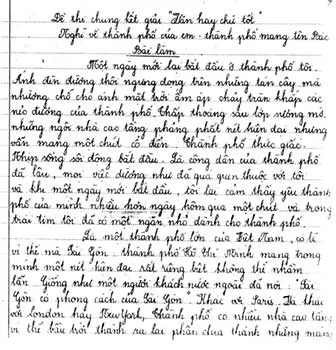 Đề thi chung kết giải "Hân hay chữ tốt"
Nghĩ về thành phố của em - thành phố mang tên Bác
Bài làm
Một ngày mới lại bắt đầu ở thành phố tôi.
Ánh đèn đường thôi ngưng đọng trên những tán cây mà
nhường chỗ cho ánh mặt trời ấm áp chảy tràn khắp các
nẻo đường của thành phố. Thấp thoáng sau lớp sương mờ,
những ngôi nhà cao tầng phảng phất nét hiện đại nhưng
vẫn mang một chút cổ điển. Thành phố thức giấc.
Nhịp sống sôi động bắt đầu. Là công dân của thành phố
đã lâu, mọi việc dường như đã quá quen thuộc với tôi
và khi một ngày mới bắt đầu, tôi lại cảm thấy yêu thành
phố của mình nhiều hơn ngày hôm qua một chút và trong
trái tim tôi đã có một ngăn nhỏ dành cho thành phố.
Là một thành phố lớn của Việt Nam, có lẽ
vì thế mà Sài Gòn - thành phố Hồ Chí Minh mang trong
mình một nét hiện đại rất riêng biệt không thể nhầm
lẫn. Giống như một người khách nước ngoài đã nói: "Sài
Gòn có phong cách của Sài Gòn". Khác với Paris, Là khác
với London hay NewYork, thành phố có nhiều nhà cao tầng
vì thế bầu trời thành ra lại phần chưa thành những mảng